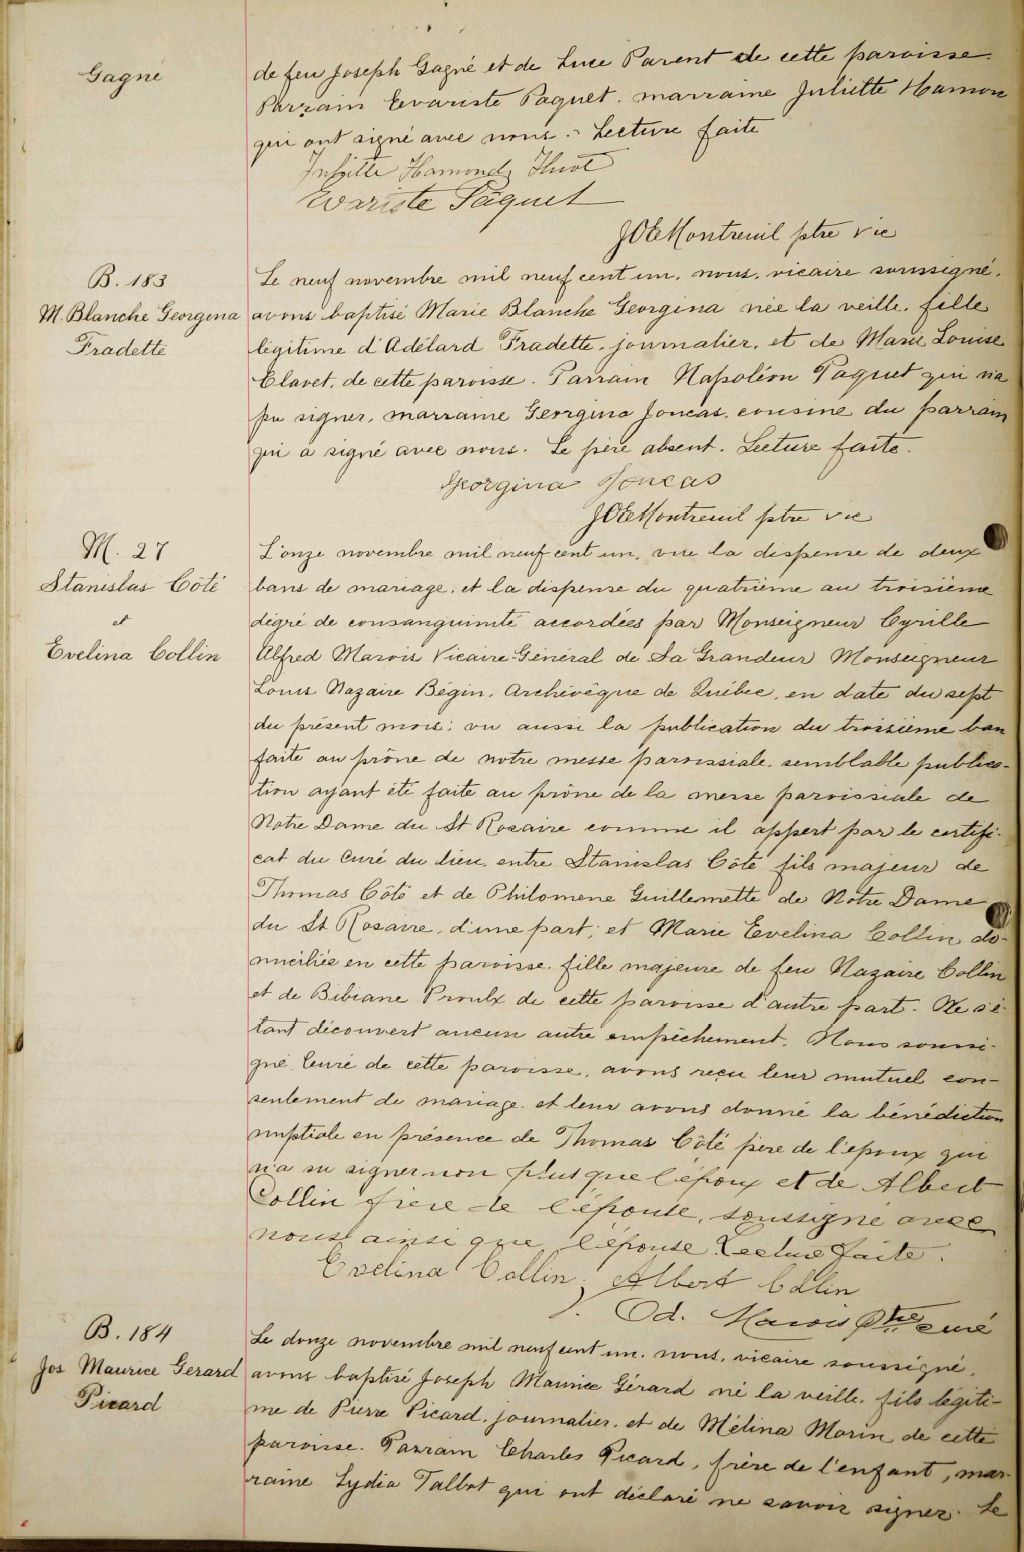 Gagné
de feu Joseph Gagné et de Luce Parent de cette paroisse.
Parrain Evariste Paquet. marraine Juliette Hamon
qui ont signé avec nous. - Lecture faite
Juliette Hamond Huot
Evariste Pâquet
JOEMontreuil ptre vic
B. 183
M. Blanche Georgina
Fradette
Le neuf novembre mil neuf cent un, nous, vicaire soussigné,
avons baptisé Marie Blanche Georgina née la veille, fille
légitime d'Adélard Fradette, journalier, et de Marie Louise
Clavet, de cette paroisse. Parrain Napoléon Paquet qui n'a
pu signer, marraine Georgina Joncas, cousine du parrain
qui a signé avec nous. Le père absent. Lecture faite.
Georgina Joncas
JOEMontreuil ptre vic
M. 27
Stanislas Côté
et
Evelina Collin
L'onze novembre mil neuf cent un, vue la dispense de deux
bans de mariage, et la dispense du quatrième au troisième
dégré de consanguinité accordées par Monseigneur Cyrille
Alfred Marois Vicaire-Général de Sa Grandeur Monseigneur
Louis Nazaire Bégin, Archévêque de Québec, en date du sept
du présent mois; vu aussi la publication du troisième ban
faite au prône de notre messe paroissiale, semblable publica-
tion ayant été faite au prône de la messe paroissiale de
Notre Dame du St Rosaire comme il appert par le certifi-
cat du Curé du lieu, entre Stanislas Côté fils majeur de
Thomas Côté et de Philomene Guillemette de Notre Dame
du St Rosaire, d'une part; et Marie Evelina Collin do-
miciliée en cette paroisse, fille majeure de feu Nazaire Collin
et de Bibiane Proulx de cette paroisse d'autre part. Ne s'é-
tant découvert aucun autre empêchement, Nous soussi-
gné, Curé de cette paroisse, avons reçu leur mutuel con-
sentement de mariage et leur avons donné la bénédiction
nuptiale en présence de Thomas Côté père de l'époux qui
n'a su signer non plus que l'époux et de Albert
Collin frère de l'épouse, soussigné avec
nous ainsi que l'épouse. Lecture faite.
Evelina Collin, Albert Collin
Od. Marois Ptre curé
B. 184
Jos Maurice Gerard
Picard
Le douze novembre mil neuf cent un, nous, vicaire soussigné,
avons baptisé Joseph Maurice Gérard né la veille, fils légiti-
me de Pierre Picard, journalier, et de Mélina Morin de cette
paroisse. Parrain Charles Picard, frère de l'enfant, mar-
raine Lydia Talbot qui ont déclaré ne savoir signer. Le